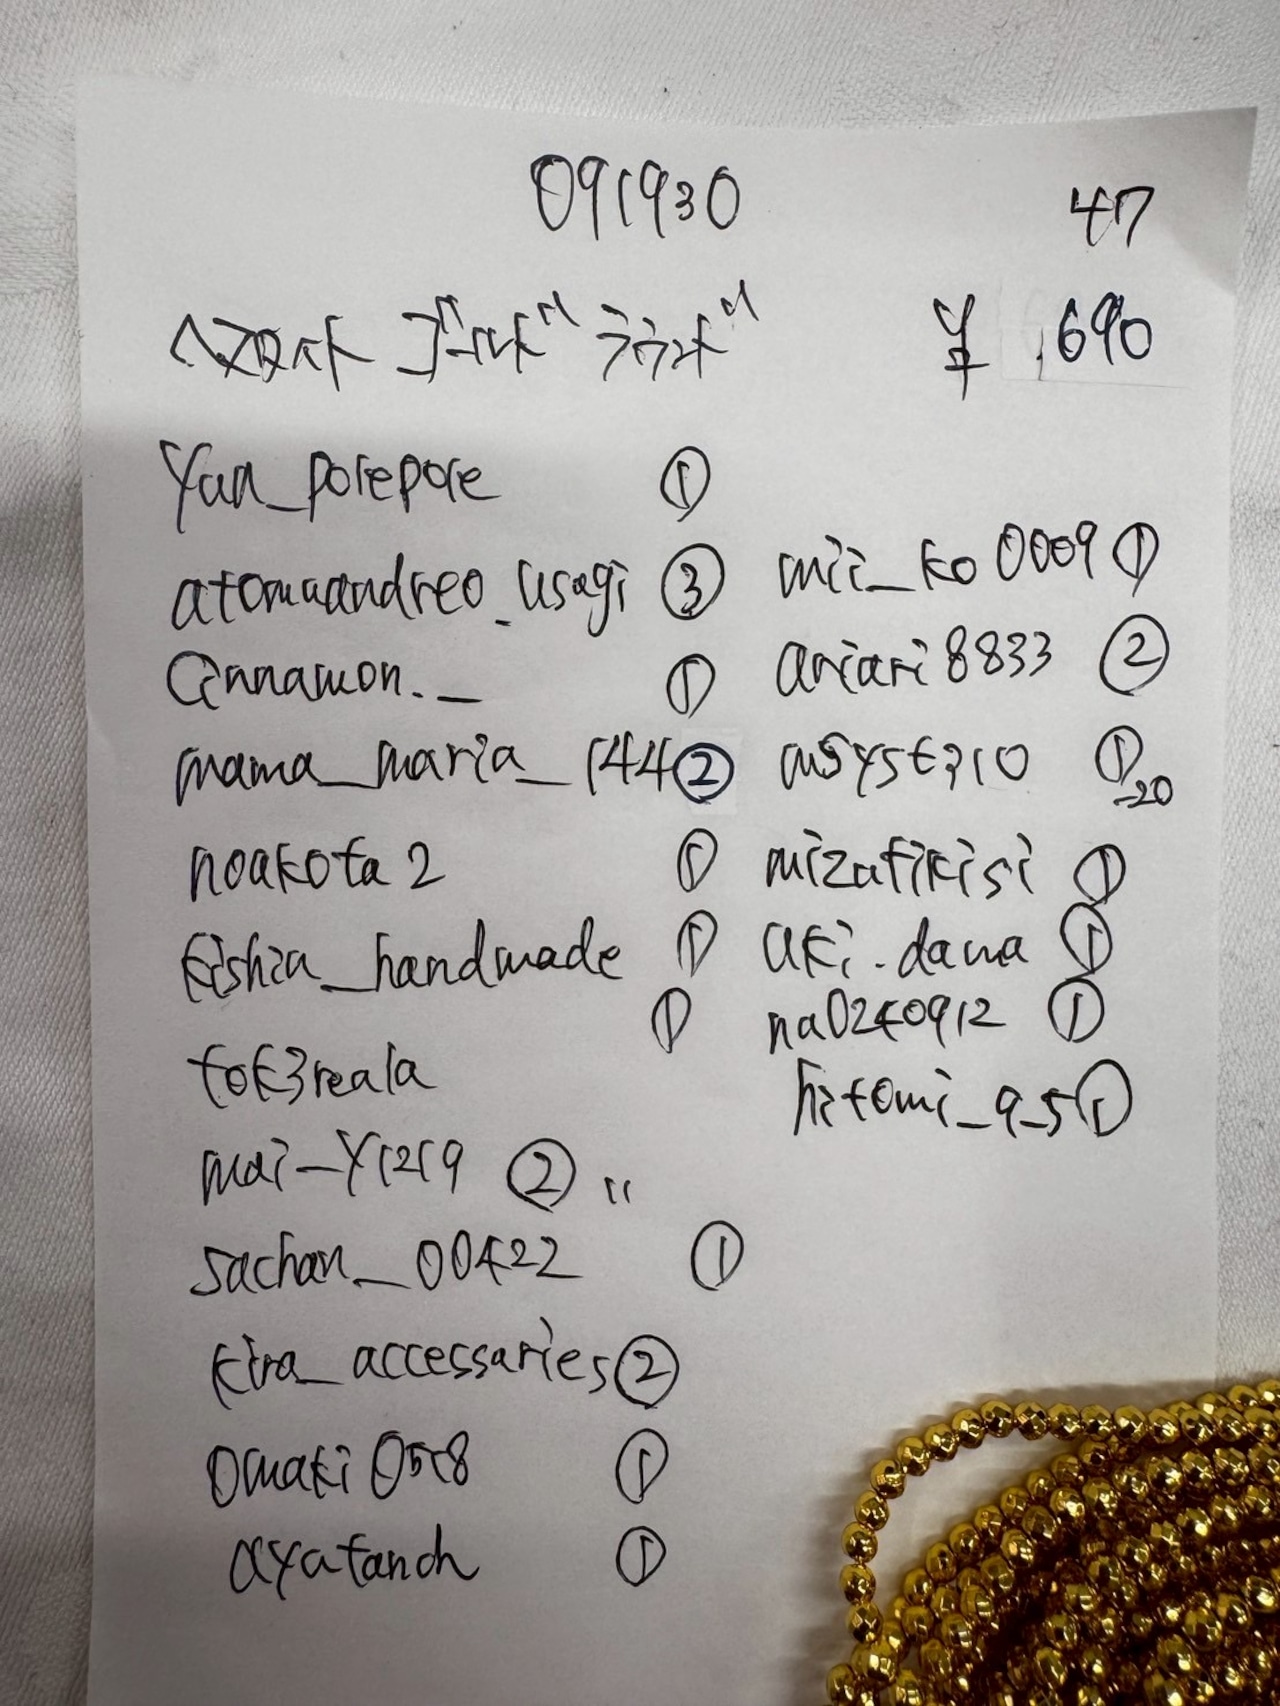 091930
47
ヘマタイト ゴールド ラウンド
¥ 690
Yun_porepore ①
atomuandreo_usagi ③
Cinnamon._ ①
mama_maria_144 ②
noakota2 ①
kishia_handmade ①
tok3reala ①
mai-y1219 ② "
sachan_00422 ①
kira_accessaries ②
omaki0518 ①
ayatanoh ①
mii_ko0009 ①
ariari8833 ②
①-20
mizufikisi ①
aki.dama ①
na0240912 ①
hitomi_9_5 ①